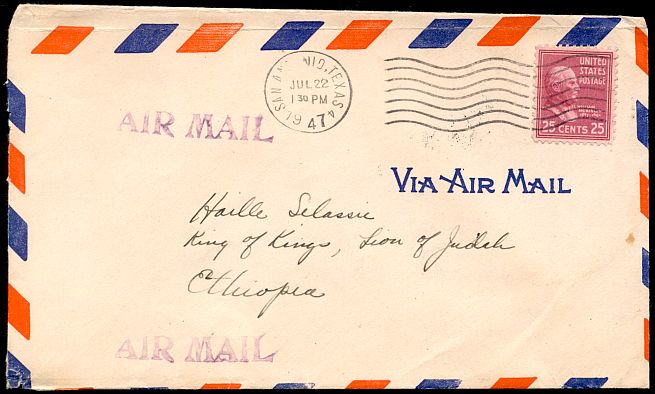 SAN AN NIO, TEXAS
JUL 22
1 30 PM
1947
4
UNITED
STATES
POSTAGE
25 CENTS 25
AIR MAIL
VIA AIR MAIL
Haille Selassie
King of Kings, Lion of Judah
Ethiopea
AIR MAIL